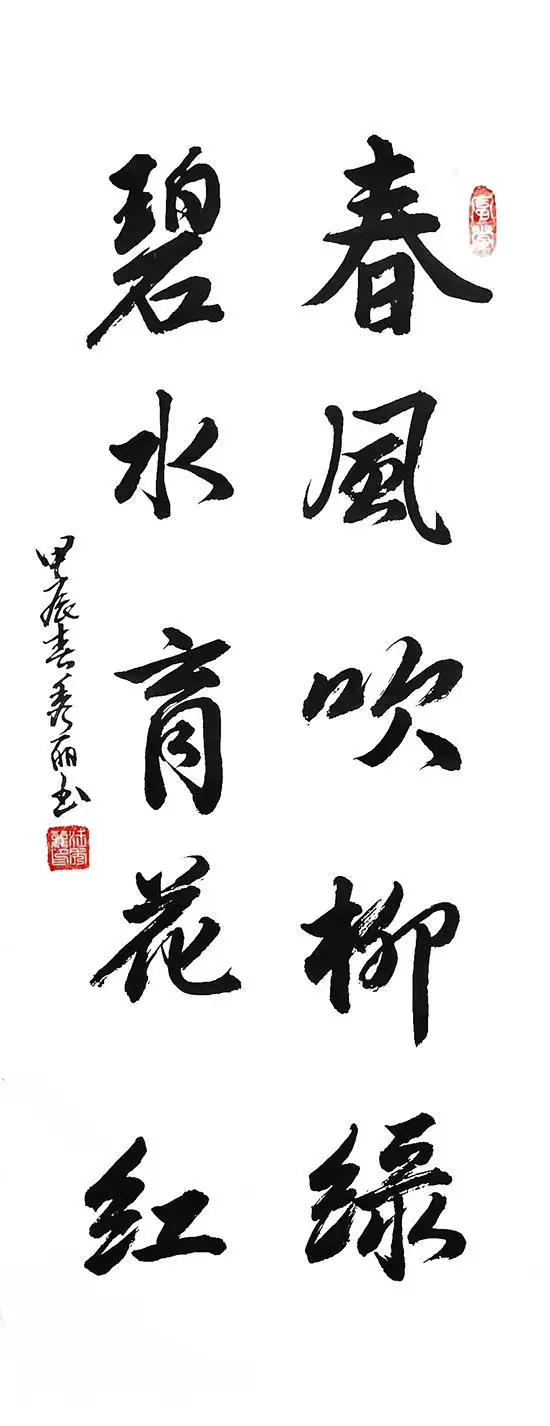 春風吹柳綠
碧水育花红
甲辰春秀丽书